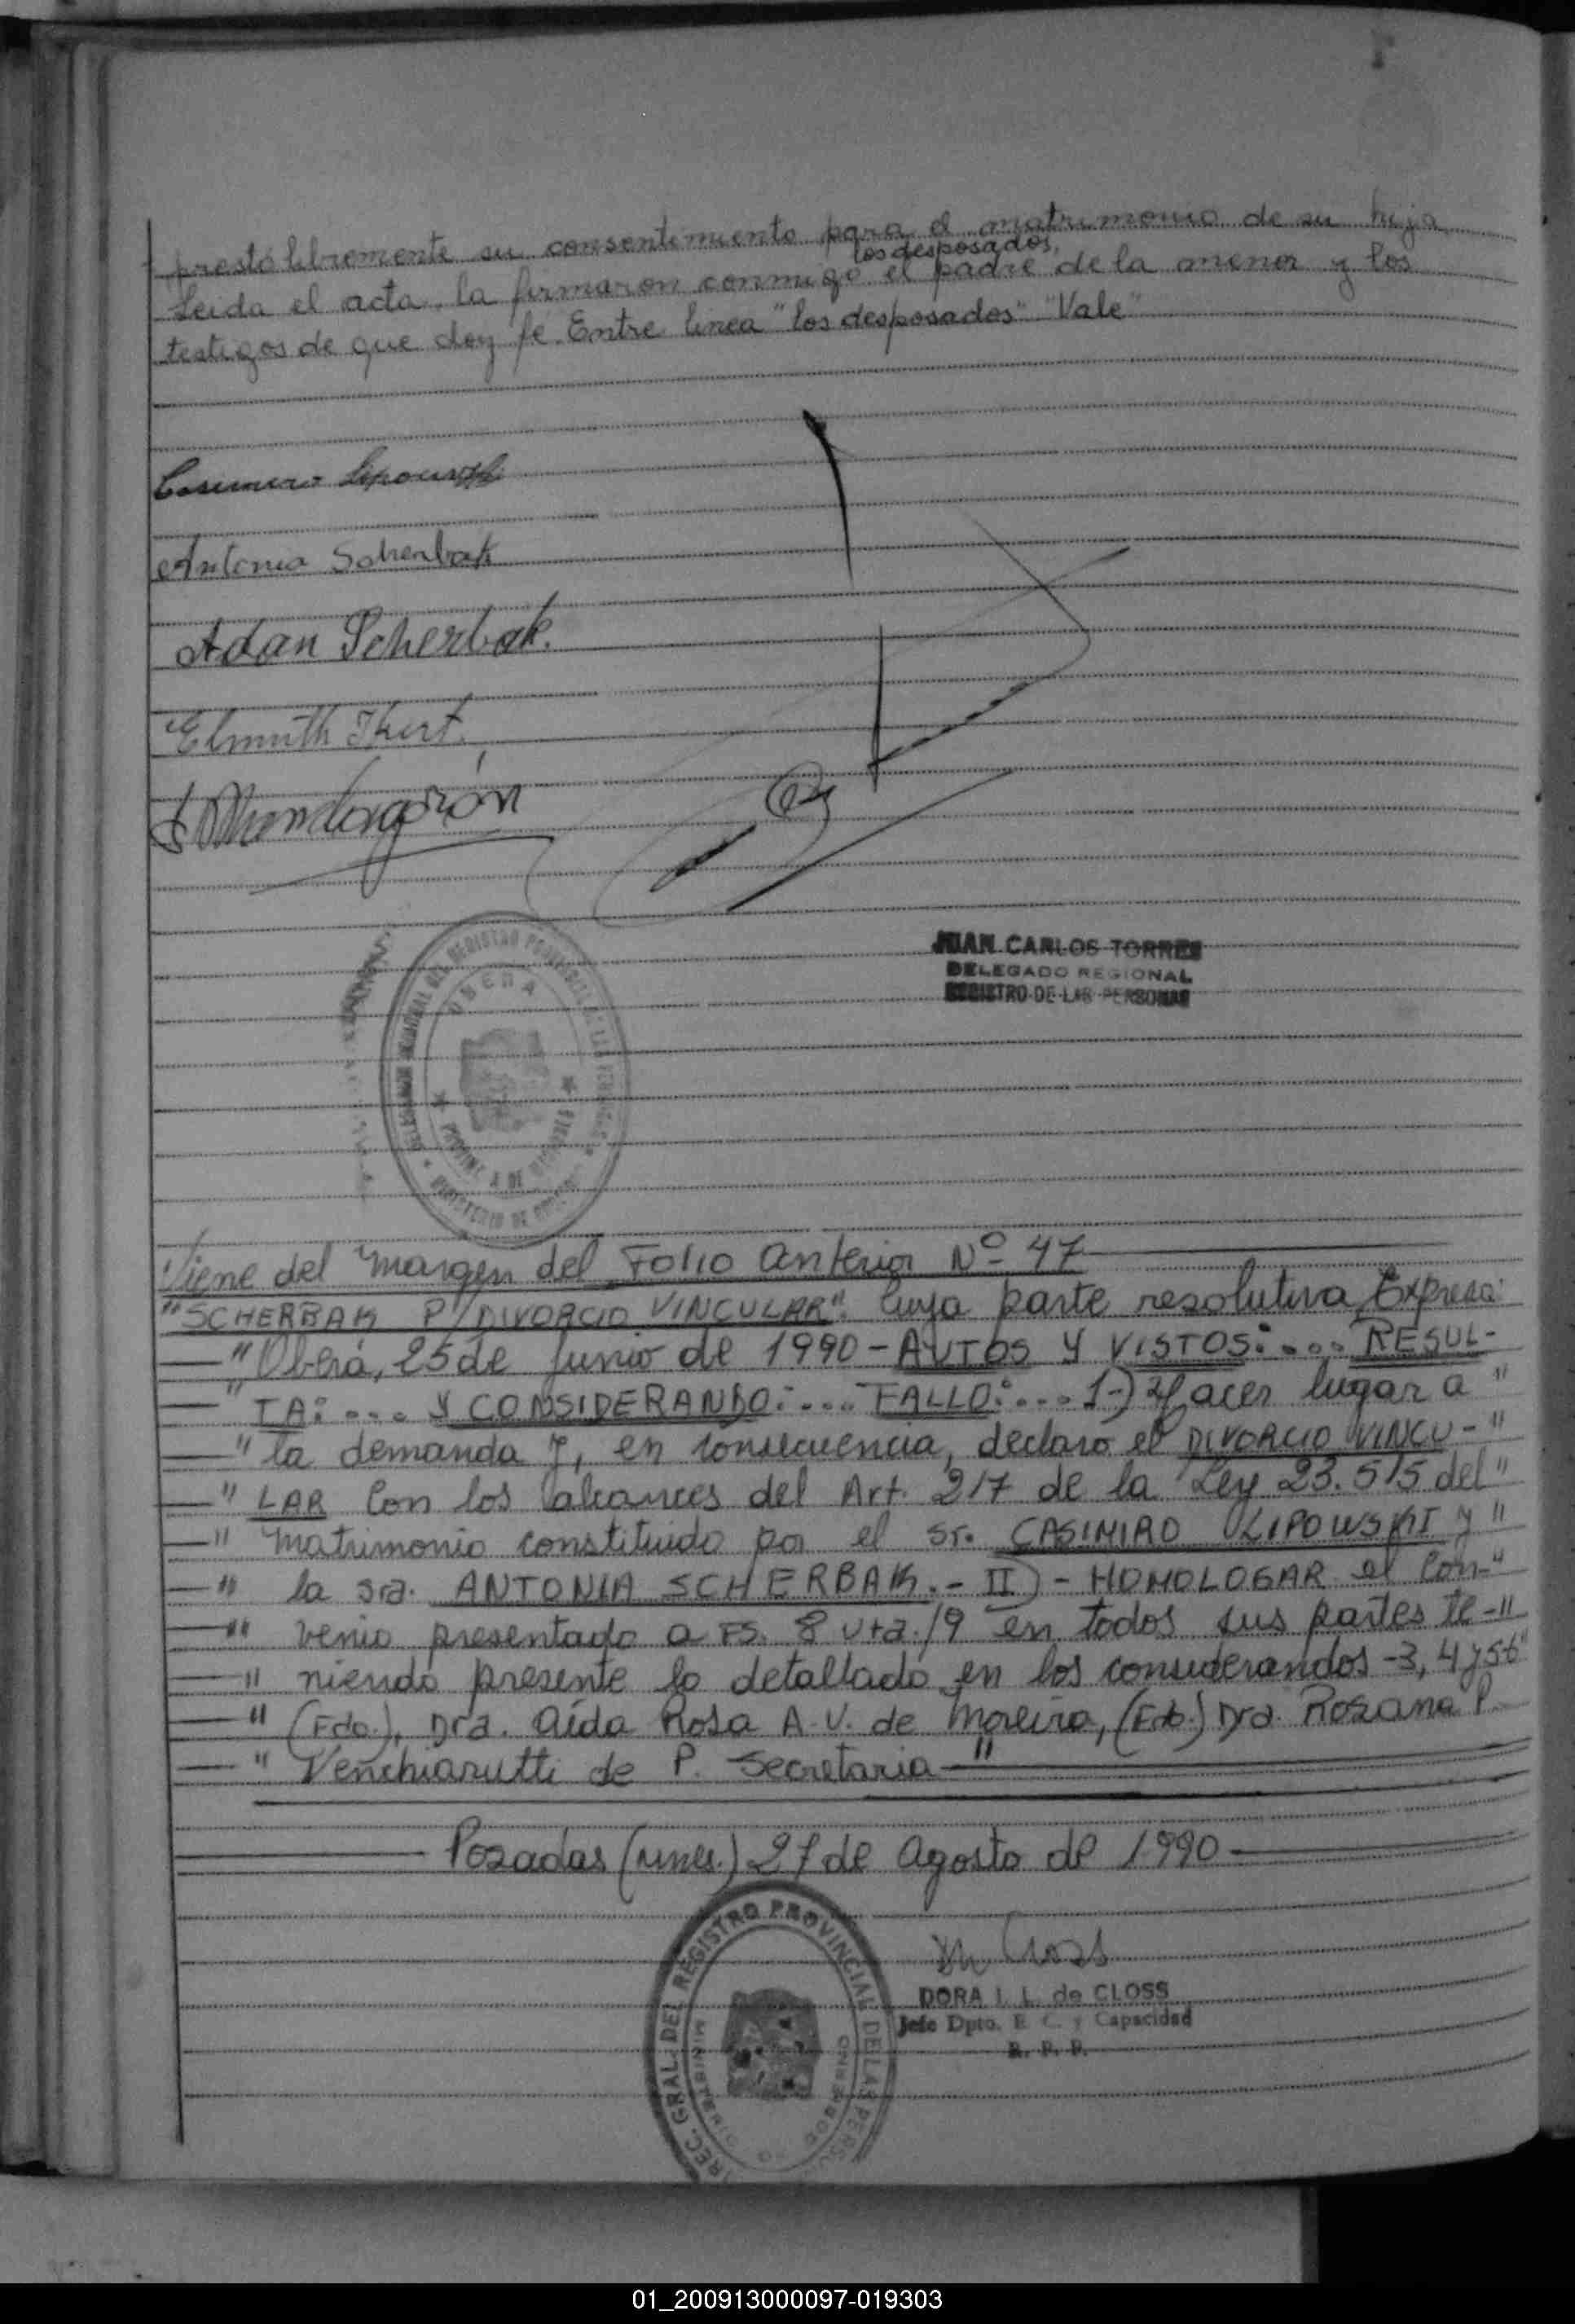 prestó libremente su consentimiento para el matrimonio de su hija
los desposados,
Leida el acta, la firmaron conmigo el padre de la menor y los
testigos de que doy fé. Entre linea "los desposados" "Vale"
Casimiro Lipowski
Antonia Scherbak
Adan Scherbak.
Elmuth
Mondragón
JUAN CARLOS TORRES
DELEGADO REGIONAL
REGISTRO DE LAS PERSONAS
Viene del margen del Folio anterior Nº 47
"SCHERBAK P/DIVORCIO VINCULAR". Cuya parte resolutiva Expresa:
"Oberá, 25 de Junio de 1990 - AUTOS Y VISTOS: .... RESUL-
" TA: .... Y CONSIDERANDO: .... FALLO: .... 1-) Hacer lugar a "
" la demanda y, en consecuencia, declaro el DIVORCIO VINCU- "
" LAR Con los alcances del Art. 217 de la Ley 23.515 del "
" matrimonio constituido por el Sr. CASIMIRO LIPOWSKI y "
" la Sra. ANTONIA SCHERBAK.- II) - HOMOLOGAR el Con- "
" venio presentado a FS. 8 vta./9 en todos sus partes te- "
" niendo presente lo detallado en los considerandos -3, 4 y
" (Fdo.), Dra. Aída Rosa A.V. de Moreira, (Fdo.) Dra. Rosana P.
" Venchiarutti de P. Secretaria "
Posadas (mnes.) 27 de Agosto de 1990
DORA I. L. de CLOSS
Jefe Dpto. E. C. y Capacidad
R. P. P.
DIREC. GRAL. DEL REGISTRO PROVINCIAL DE LAS PERS
MINISTERIO
GOBIERNO
01_200913000097-019303